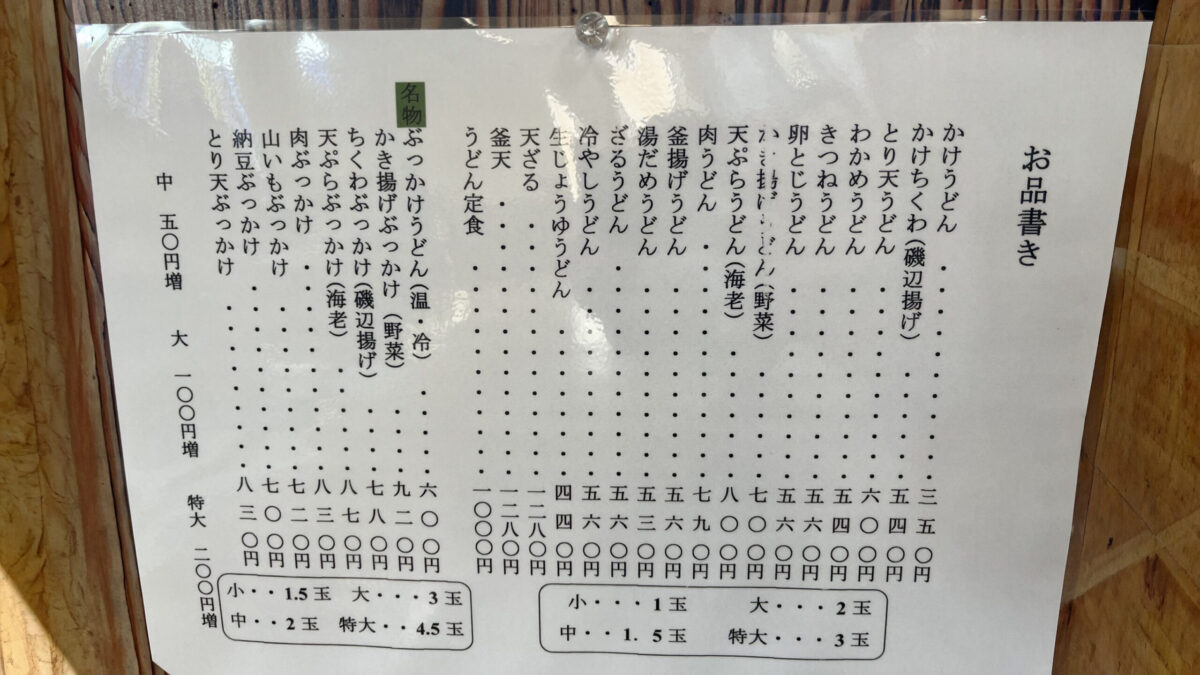 お品書き
かけうどん・・・・・・・・・・三五〇円
かけちくわ(磯辺揚げ)・・・・・五四〇円
とり天うどん・・・・・・・・・六〇〇円
わかめうどん・・・・・・・・・五四〇円
きつねうどん・・・・・・・・・五六〇円
卵とじうどん・・・・・・・・・五六〇円
かき揚げうどん(野菜)・・・・・七〇〇円
天ぷらうどん(海老)・・・・・・八〇〇円
肉うどん・・・・・・・・・・・七九〇円
釜揚げうどん・・・・・・・・・五六〇円
湯だめうどん・・・・・・・・・五三〇円
ざるうどん・・・・・・・・・・五六〇円
冷やしうどん・・・・・・・・・五六〇円
生じょうゆうどん・・・・・・・四四〇円
天ざる・・・・・・・・・・・・一二八〇円
釜天・・・・・・・・・・・・・一二八〇円
うどん定食・・・・・・・・・・一〇〇〇円
小・・・1玉 大・・・2玉
中・・1.5玉 特大・・・3玉
名物ぶっかけうどん(温・冷)・・・・六〇〇円
かき揚げぶっかけ(野菜)・・・・九二〇円
ちくわぶっかけ(磯辺揚げ)・・・・七八〇円
天ぷらぶっかけ(海老)・・・・・八七〇円
肉ぶっかけ・・・・・・・・・・八三〇円
山いもぶっかけ・・・・・・・・七二〇円
納豆ぶっかけ・・・・・・・・・七〇〇円
とり天ぶっかけ・・・・・・・・八三〇円
中 五〇円増 大 一〇〇円増 特大 二〇〇円増
小・・1.5玉 大・・・3玉
中・・2玉 特大・・4.5玉